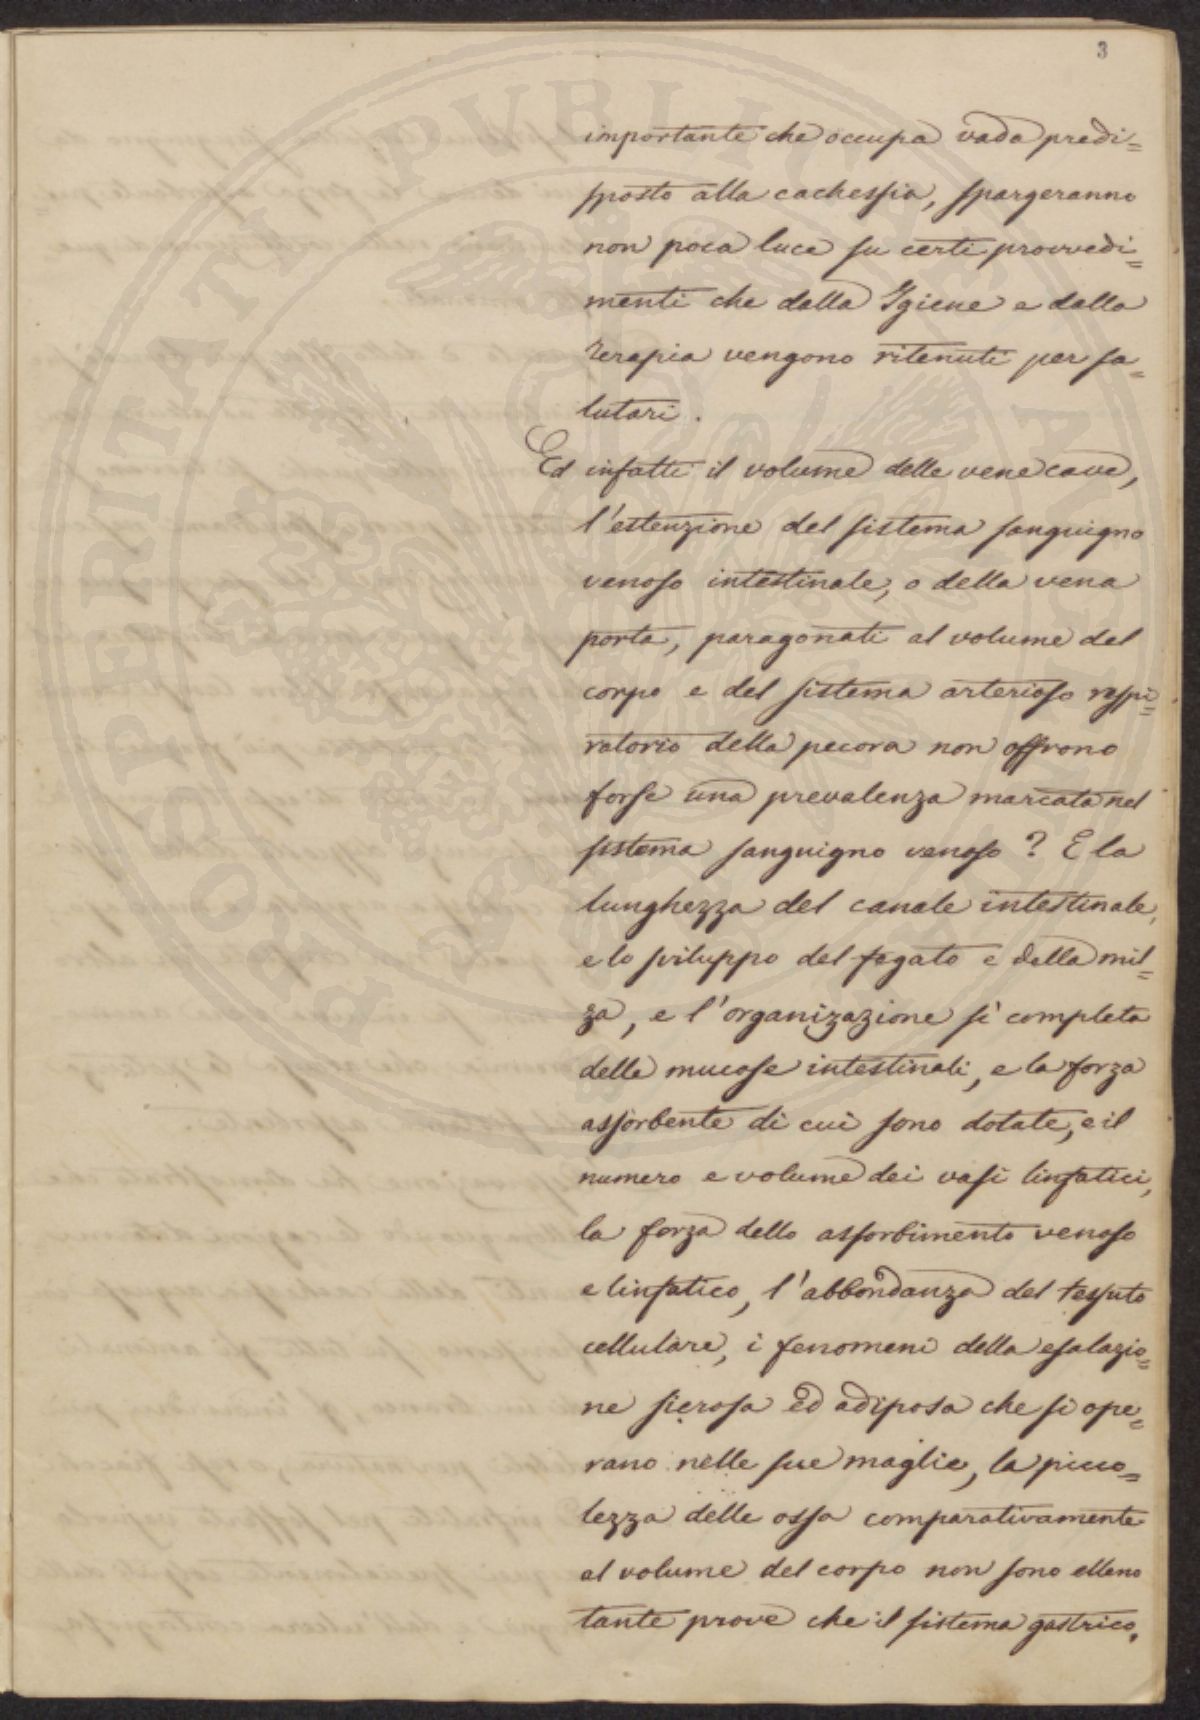 3
importante che occupa vada predi=
sposto alla cachessia, spargeranno
non poca luce su certi provvedi=
menti che dalla Igiene e dalla
Terapia vengono ritenuti per sa=
lutari.
Ed infatti il volume delle vene cave,
l'estenzione del sistema sanguigno
venoso intestinale, o della vena
porta, paragonati al volume del
corpo e del sistema arterioso respi=
ratorio della pecora non offrono
forse una prevalenza marcata nel
sistema sanguigno venoso? E la
lunghezza del canale intestinale,
e lo sviluppo del fegato e della mil=
za, e l'organizazione sì completa
delle mucose intestinali, e la forza
assorbente di cui sono dotate, e il
numero e volume dei vasi linfatici,
la forza dello assorbimento venoso
e linfatico, l'abbondanza del tessuto
cellulare, i fenomeni della esalazio=
ne sierosa ed adiposa che si ope=
rano nelle sue maglie, la picco=
lezza delle ossa comparativamente
al volume del corpo non sono elleno
tante prove che il sistema gastrico,
PROSPERITATI PVBLICAE AVGENDAE